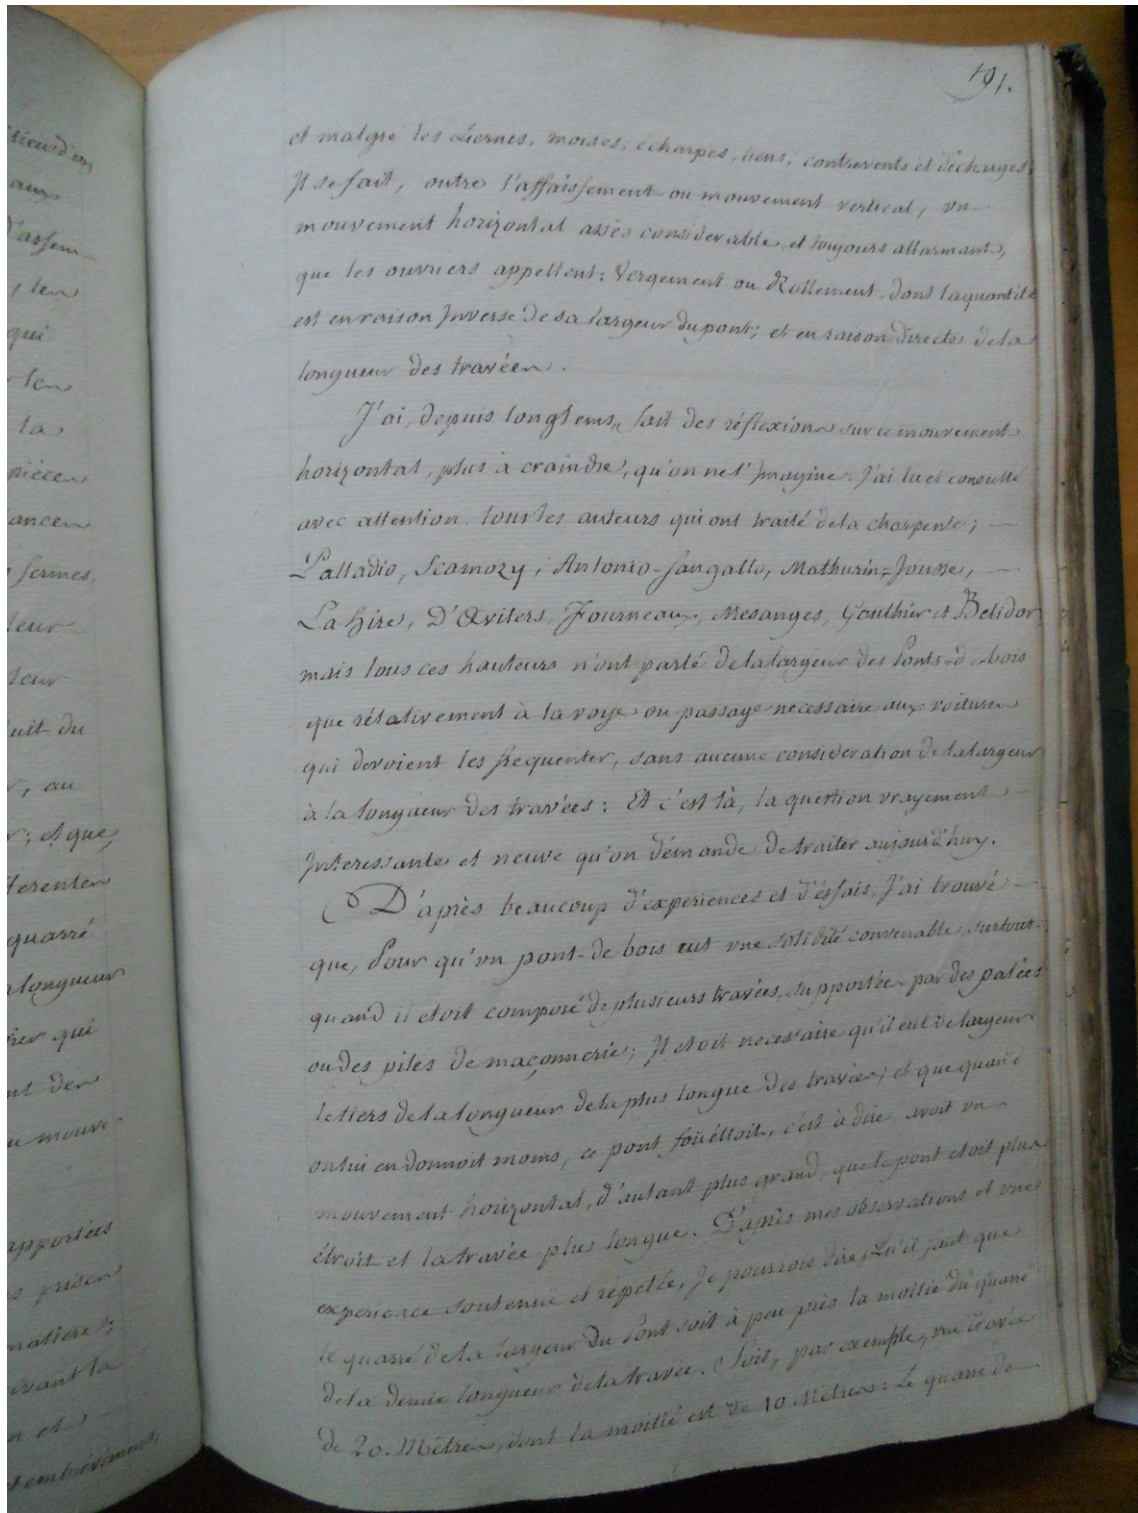 191.
et malgré les Liernes, moises, écharpes, liens, contrevents et décharges,
Il se fait, outre l'affaissement ou mouvement vertical, un
mouvement horizontal assès considerable, et toujours allarmant,
que les ouvriers appellent: Vergement ou Rollement, dont la quantité
est en raison Inverse de sa largeur du pont; et en raison directe de la
longueur des travées.
J'ai, depuis longtems, fait des réflexions sur ce mouvement
horizontal, plus à craindre, qu'on ne l'Imagine. J'ai lu et consulté
avec attention tous les auteurs qui ont traité de la charpente;
Palladio, Scamozy, Antonio-Sangallo, Mathurin-Jousse,
La hire, D'Avilers, Fourneaux, Mesanges, Gauthier et Belidor,
mais tous ces hauteurs n'ont parlé de la largeur des Ponts-de-bois
que rélativement à la voye ou passage necessaire aux voitures
qui devoient les frequenter, sans aucune consideration de la largeur
à la longueur des travées: Et c'est là, la question vrayement
Interessante et neuve qu'on démande de traiter aujourd'huy.
D'après beaucoup d'experiences et d'éssais, J'ai trouvé
que, Pour qu'un pont-de bois eut une solidité convenable, surtout
quand il etoit composé de plusieurs travées, supportées par des palées
ou des piles de maçonnerie; Il etoit necessaire qu'il eut de largeur
le tiers de la longueur de la plus longue des travées; et que quand
on lui en donnoit moins, ce pont foüéttoit, c'est à dire, avoit un
mouvement horizontal, d'autant plus grand, que le pont etoit plus
étroit et la travée plus longue. D'après mes observations et une
experience soutenue et répetée, Je pourrois dire, Qu'il faut que
le quarré de la largeur du Pont soit à peu près la moitié du quarré
de la demie longueur de la travée. Soit, par exemple, une travée
de 20. Mètres, dont la moitié est de 10 Mètres: Le quarré de
aux
d'assem-
les
qui
les
la
piéces
fermes,
leur
leur
du
, au
; et que,
ferentes
quarré
longueur
qui
des
mouve-
apportées
prises
matiere;
vant la
et